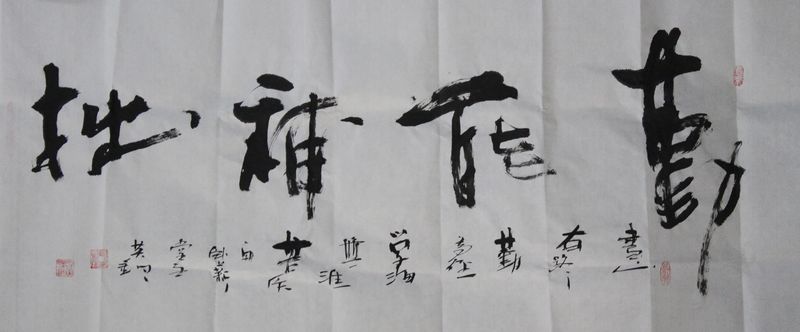 勤能補拙
書山
有路
勤
為徑
學海
無涯
苦作
舟